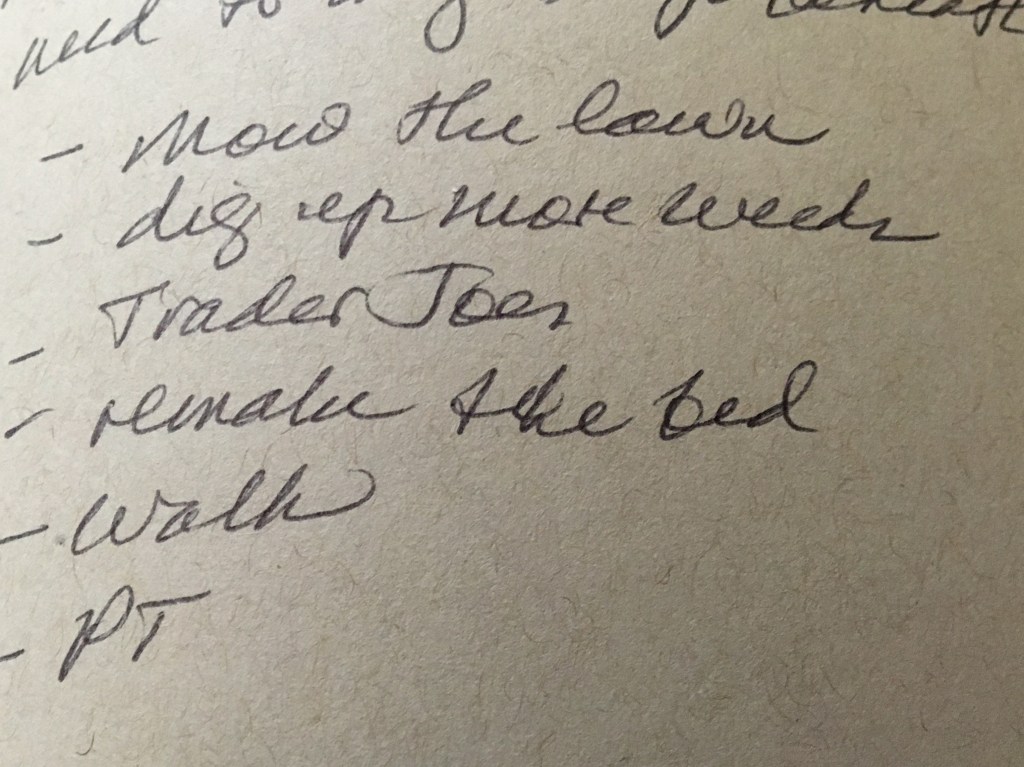 need to
- Mow the lawn
- dig up more weeds
- Trader Joes
- remake the bed
- Walk
- PT